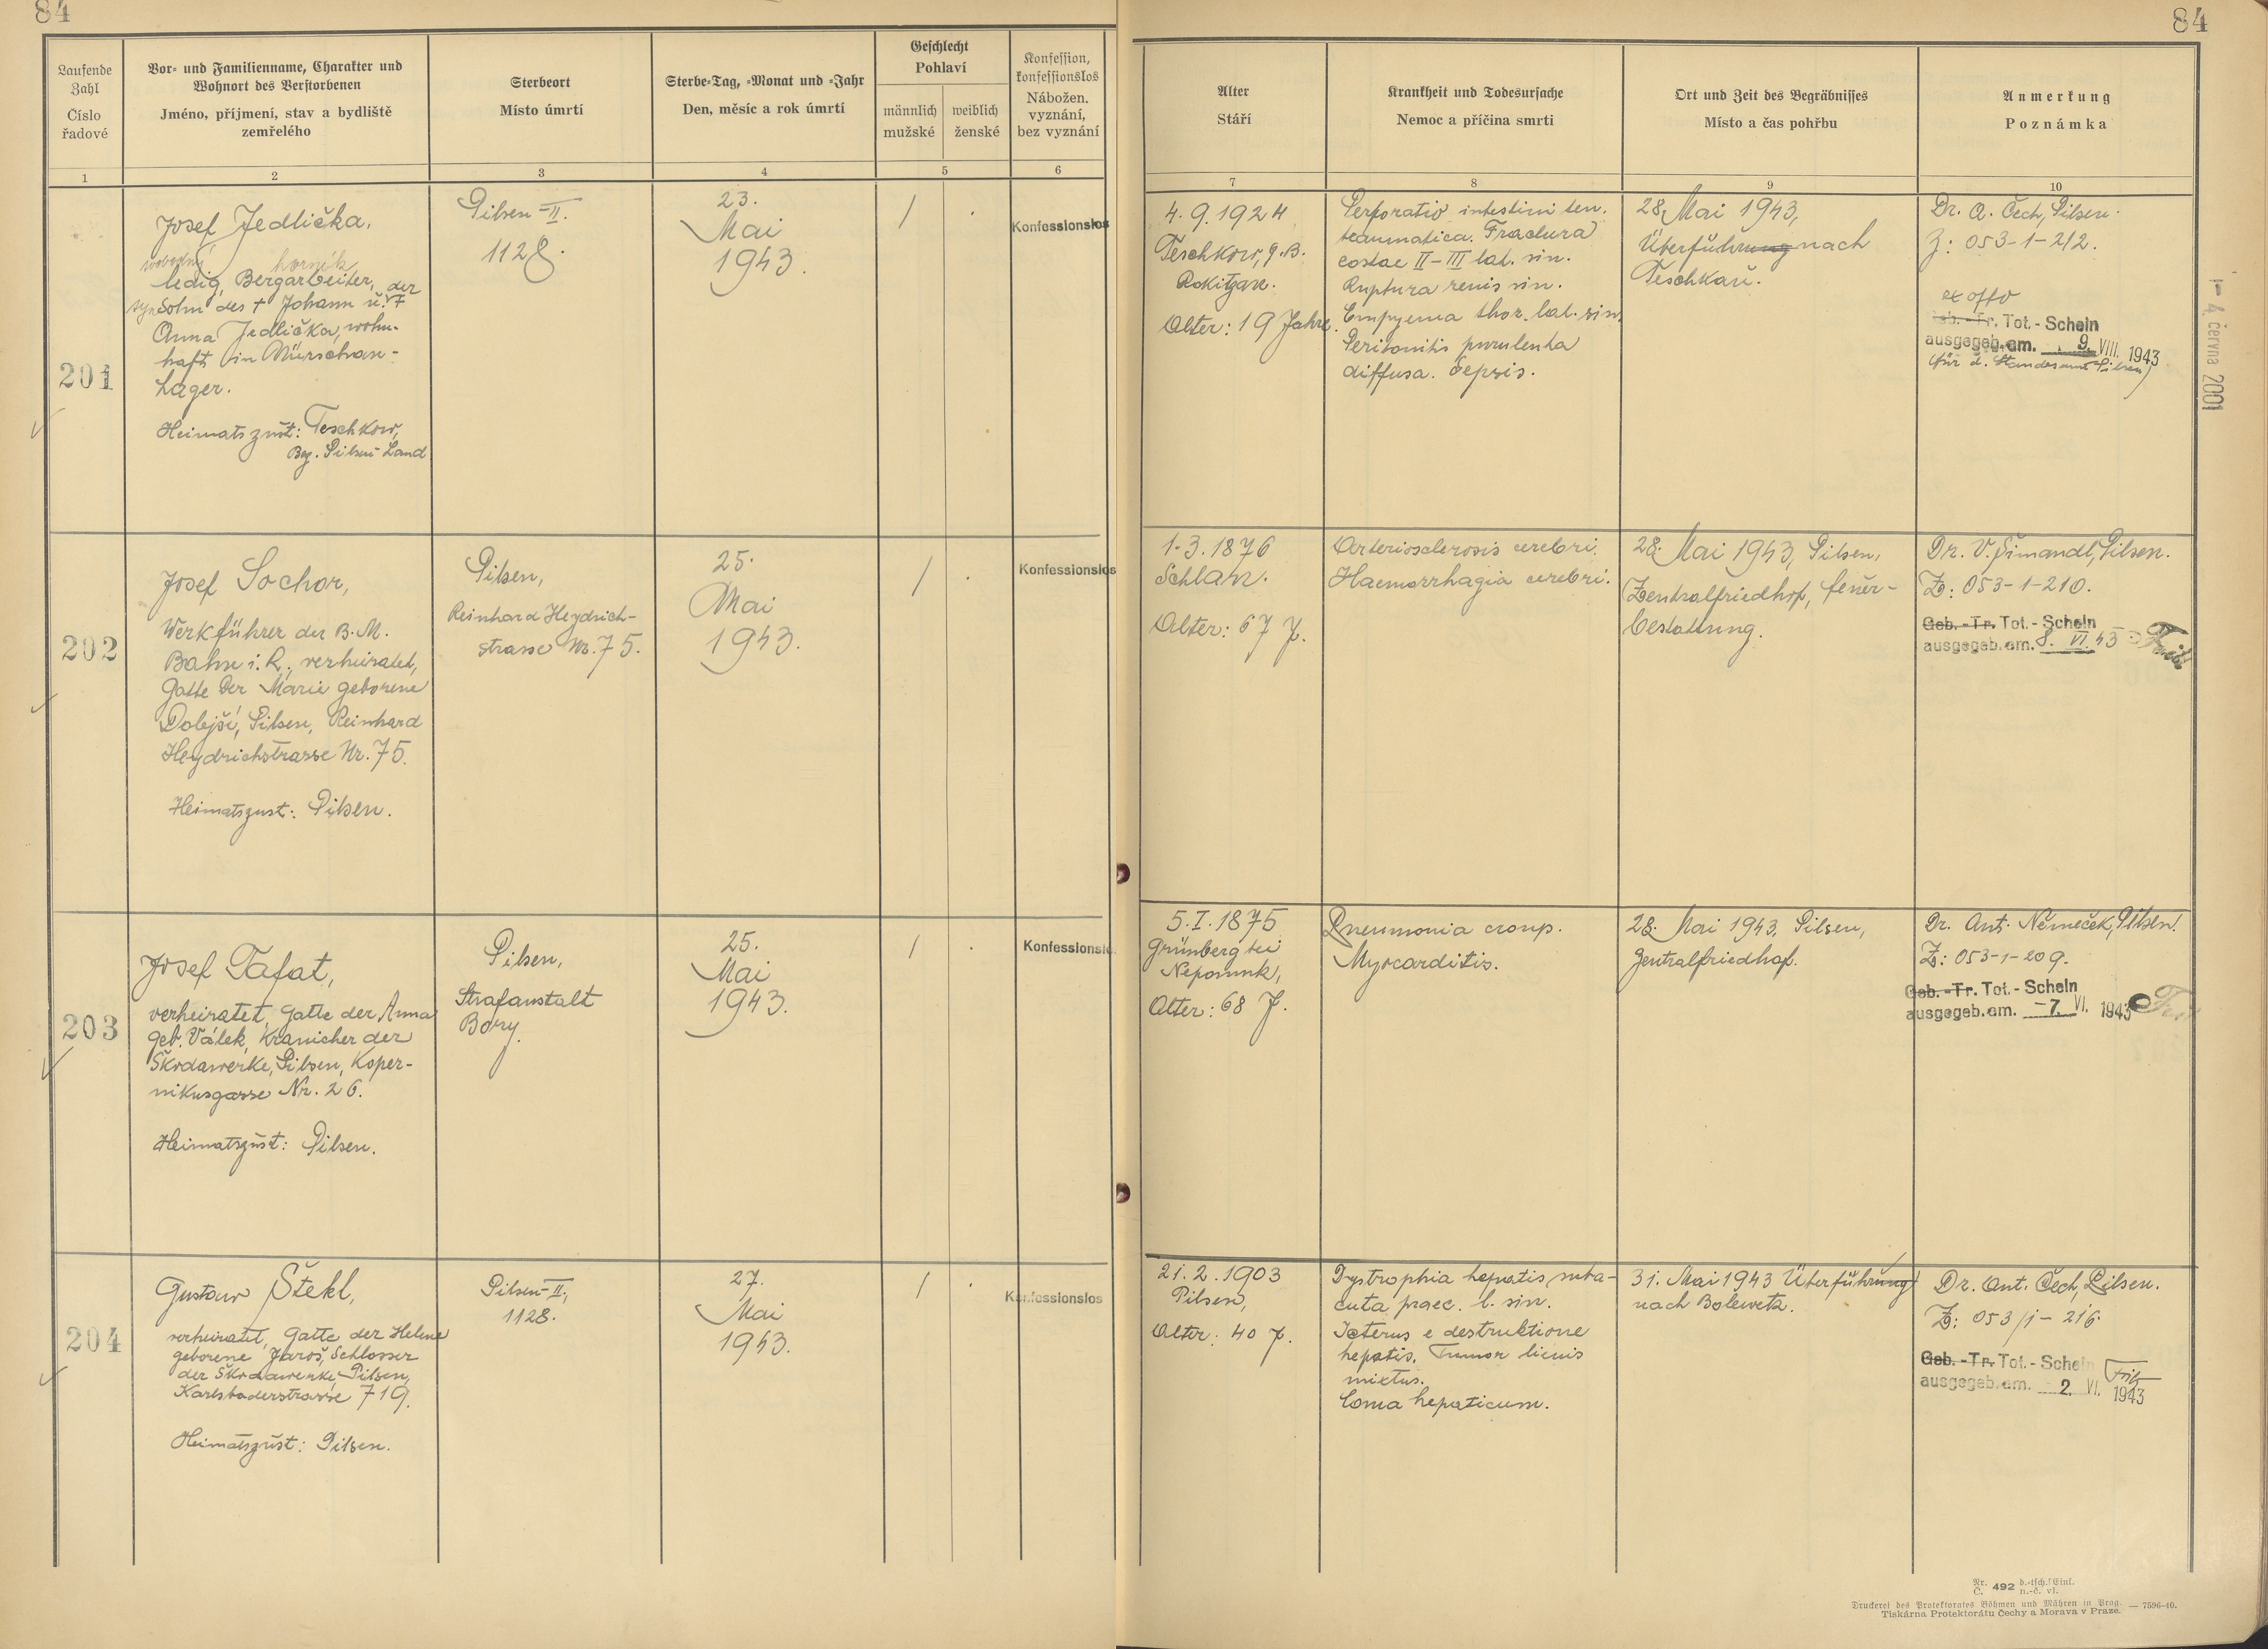 84
84
Laufende Zahl
Číslo řadové
Vor- und Familienname, Charakter und
Wohnort des Verstorbenen
Jméno, příjmení, stav a bydliště
zemřelého
Sterbeort
Místo úmrtí
Sterbe-Tag, -Monat und -Jahr
Den, měsíc a rok úmrtí
Geschlecht
Pohlaví
männlich
mužské
weiblich
ženské
Konfession,
konfessionslos
Nábožen.
vyznání,
bez vyznání
Alter
Stáří
Krankheit und Todesursache
Nemoc a příčina smrti
Ort und Zeit des Begräbnisses
Místo a čas pohřbu
Anmerkung
Poznámka
1 2 3 4 5 6 7 8 9 10
201
Josef Jedlička,
svobodný horník
ledig, Bergarbeiter, der
syn Sohn des † Johann u. †
Anna Jedlička, wohn-
haft in Nürschan-
Lager.
Heimatszust: Teschkow,
Bez. Pilsen-Land
Pilsen-II.
1128.
23.
Mai
1943.
/ .
Konfessionslos
4. 9. 1924
Teschkow, g. B.
Rokitzan.
Alter: 19 Jahre.
Perforatio intestini ten.
traumatica. Fractura
costae II-III lat. sin.
Ruptura renis sin.
Empyema thor. lat. sin.
Peritonitis purulenta
diffusa. Sepsis.
28. Mai 1943,
Überführung nach
Teschkau.
Dr. A. Čech, Pilsen.
Z: 053-1-212.
ex offo
Geb.-Tr. Tot.-Schein
ausgegeb. am. 9. VIII. 1943
(für d. Standesamt Pilsen)
- 4. června 2001
202
Josef Sochor,
Werkführer der B. M.
Bahn i. R., verheiratet,
Gatte der Marie geborene
Dolejší, Pilsen, Reinhard
Heydrichstrasse Nr. 75.
Heimatszust: Pilsen.
Pilsen,
Reinhard Heydrich-
strasse Nr. 75.
25.
Mai
1943.
/ .
Konfessionslos
1. 3. 1876
Schlan.
Alter: 67 J.
Arteriosclerosis cerebri.
Haemorrhagia cerebri.
28. Mai 1943, Pilsen,
Zentralfriedhof, feuer-
bestattung.
Dr. V. Šimandl, Pilsen.
Z: 053-1-210.
Geb.-Tr. Tot.-Schein
ausgegeb. am. 8. VI. 43
203
Josef Tafat,
verheiratet, Gatte der Anna
geb. Válek, Kranicher der
Škodawerke, Pilsen, Koper-
nikusgasse Nr. 26.
Heimatszust: Pilsen.
Pilsen,
Strafanstalt
Bory.
25.
Mai
1943.
/ .
Konfessionslo
5. I. 1875
Grünberg bei
Nepomuk,
Alter: 68 J.
Pneumonia croup.
Myocarditis.
28. Mai 1943, Pilsen,
Zentralfriedhof.
Dr. Ant. Němeček, Pilsen.
Z: 053-1-209.
Geb.-Tr. Tot.-Schein
ausgegeb. am. -7. VI. 1943
204
Gustav Štekl,
verheiratet, Gatte der Helene
geborene Jaroš, Schlosser
der Škodawerke, Pilsen,
Karlsbaderstrasse 719.
Heimatszust: Pilsen.
Pilsen-II.,
1128.
27.
Mai
1943.
/ .
Konfessionslos
21. 2. 1903
Pilsen,
Alter: 40 J.
Dystrophia hepatis suba-
cuta praec. l. sin.
Icterus e destruktione
hepatis. Tumor lienis
mixtus.
Coma hepaticum.
31. Mai 1943 Überführung
nach Bolewetz.
Dr. Ant. Čech, Pilsen.
Z: 053/1-216.
Geb.-Tr. Tot.-Schein
ausgegeb. am. 2. VI. 1943
Nr. Č. 492 d.-tsch. Einl. n.-č. vl.
Druckerei des Protektorates Böhmen und Mähren in Prag. — 7596-40.
Tiskárna Protektorátu Čechy a Morava v Praze.